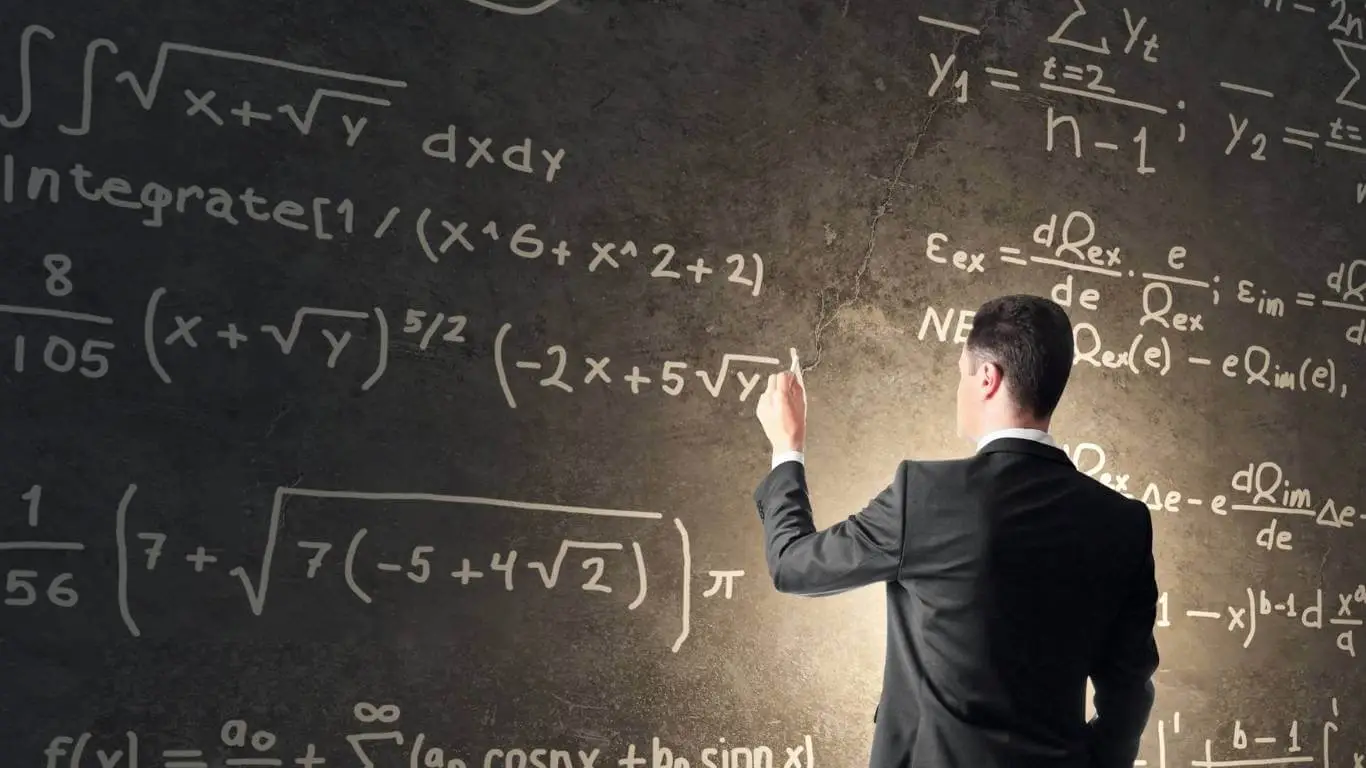 ∫∫√(x+√y) dxdy
Integrate[1/(x^6+x^2+2)
8/105 (x+√y)^5/2 (-2x+5√y
1/56 (7+√(7(-5+4√2)))π
f(x) = a₀/ + ∞ Σ (aₙ cosnx + bₙ sinnx)
ȳ₁ = Σ t=2 yₜ / n-1 ; ȳ₂ = Σ t=
εex = dΩex/de · e/Ωex ; εim =
Ωex(e) - eΩim(e),
Ωex Δe - e dΩim/de Δe
1 - x)^b-1 d x^a/a
b-1